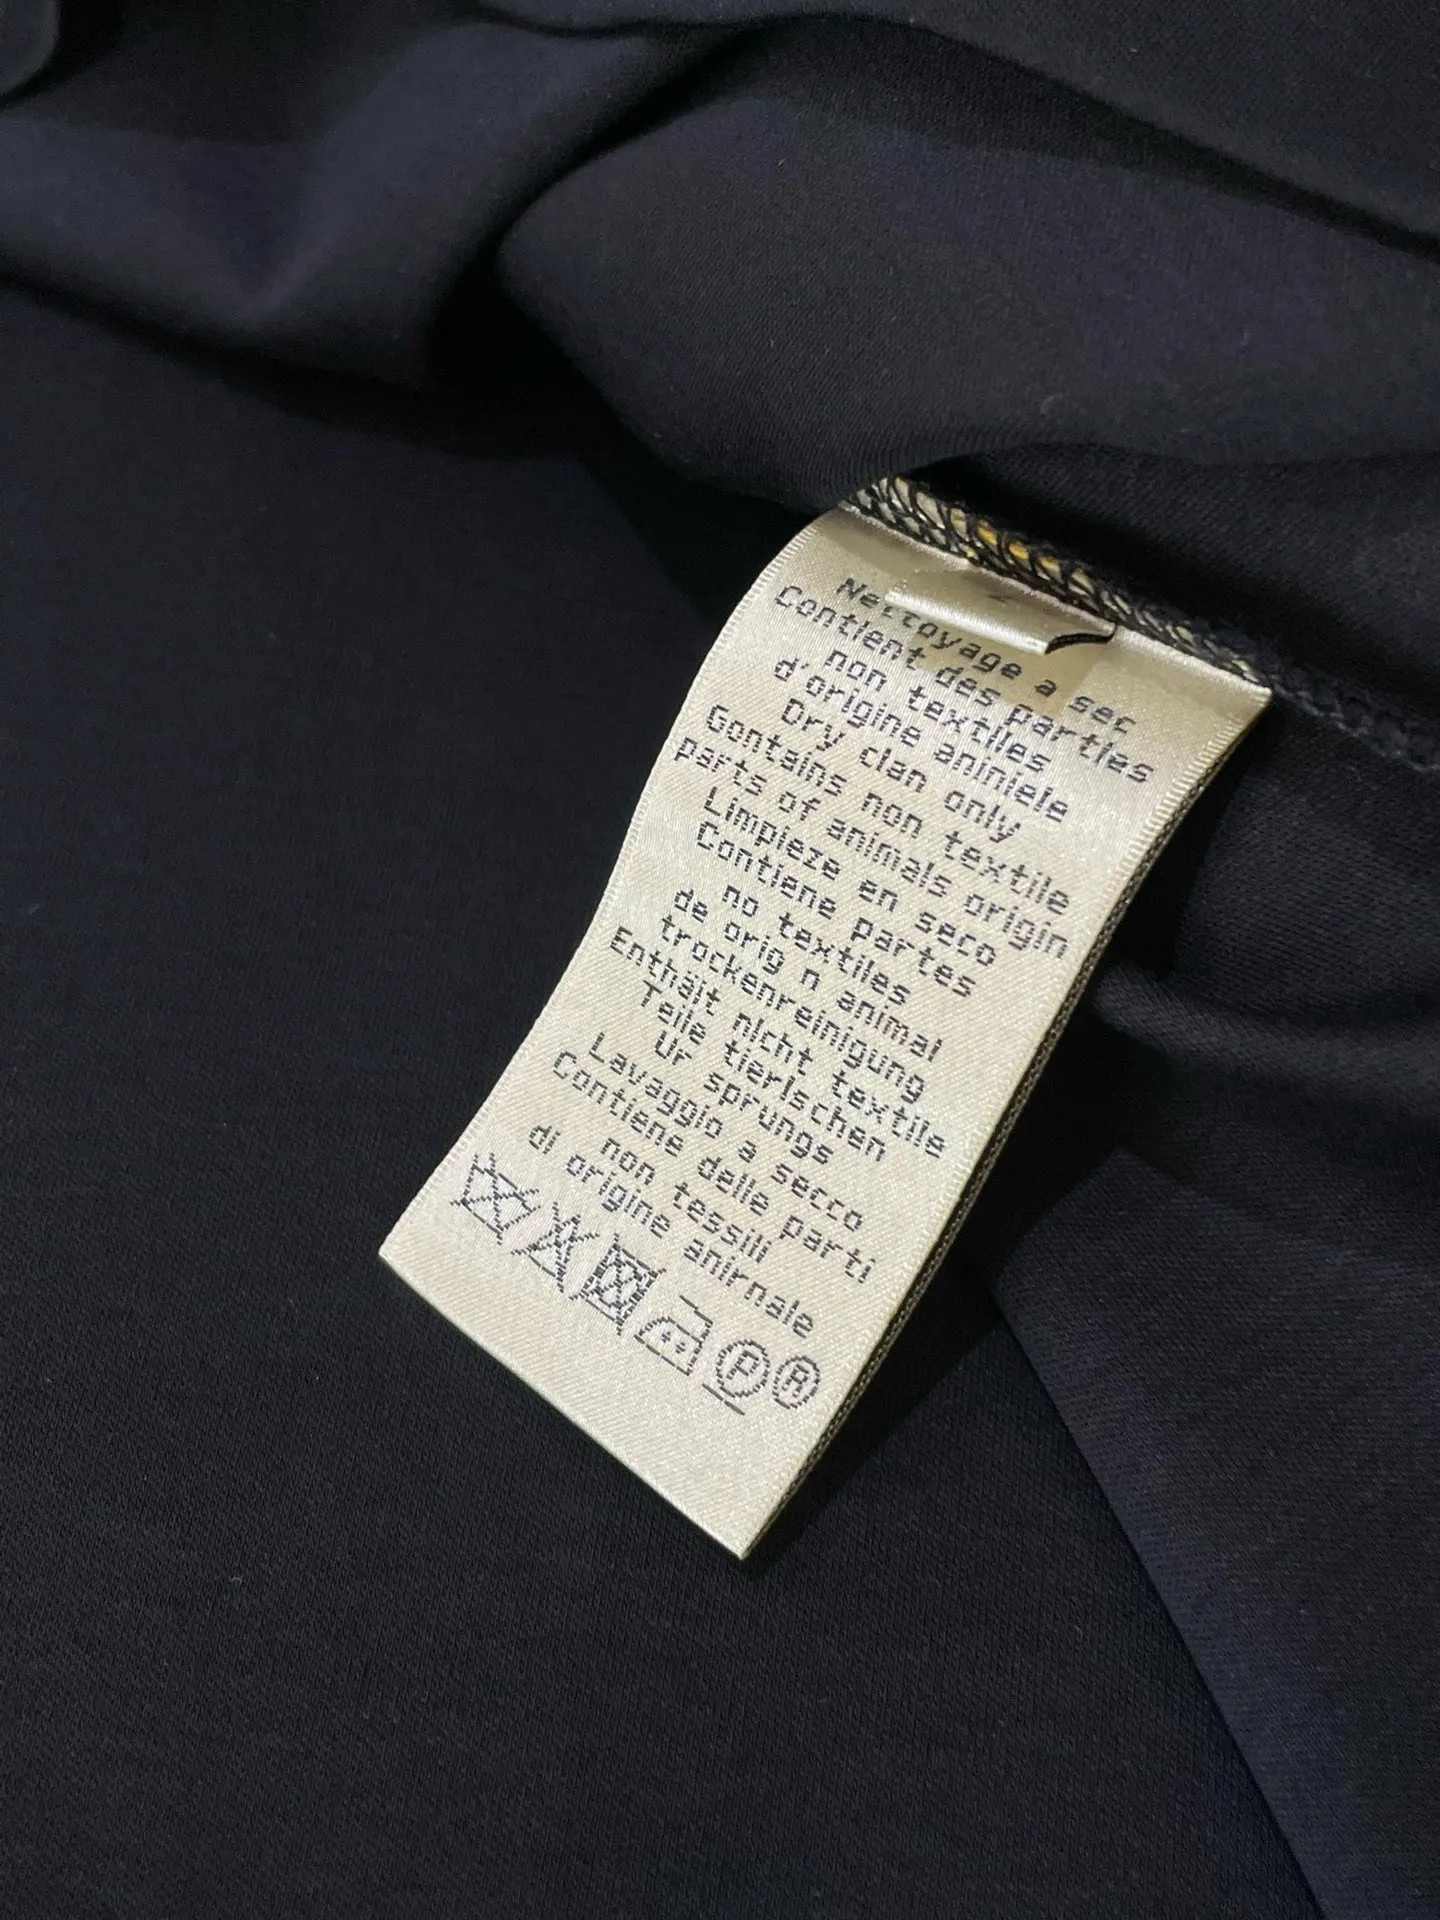 Nettoyage a sec
Contient des parties
non textiles
d'origine aniniele
Dry clan only
Gontains non textile
parts of animals origin
Limpieze en seco
Contiene partes
no textiles
de orig n animal
trockenreinigung
Enthäit nicht textile
Teile tierlschen
Ur sprungs
Lavaggio a secco
Contiene delle parti
non tessili
di origine anirnale
P R